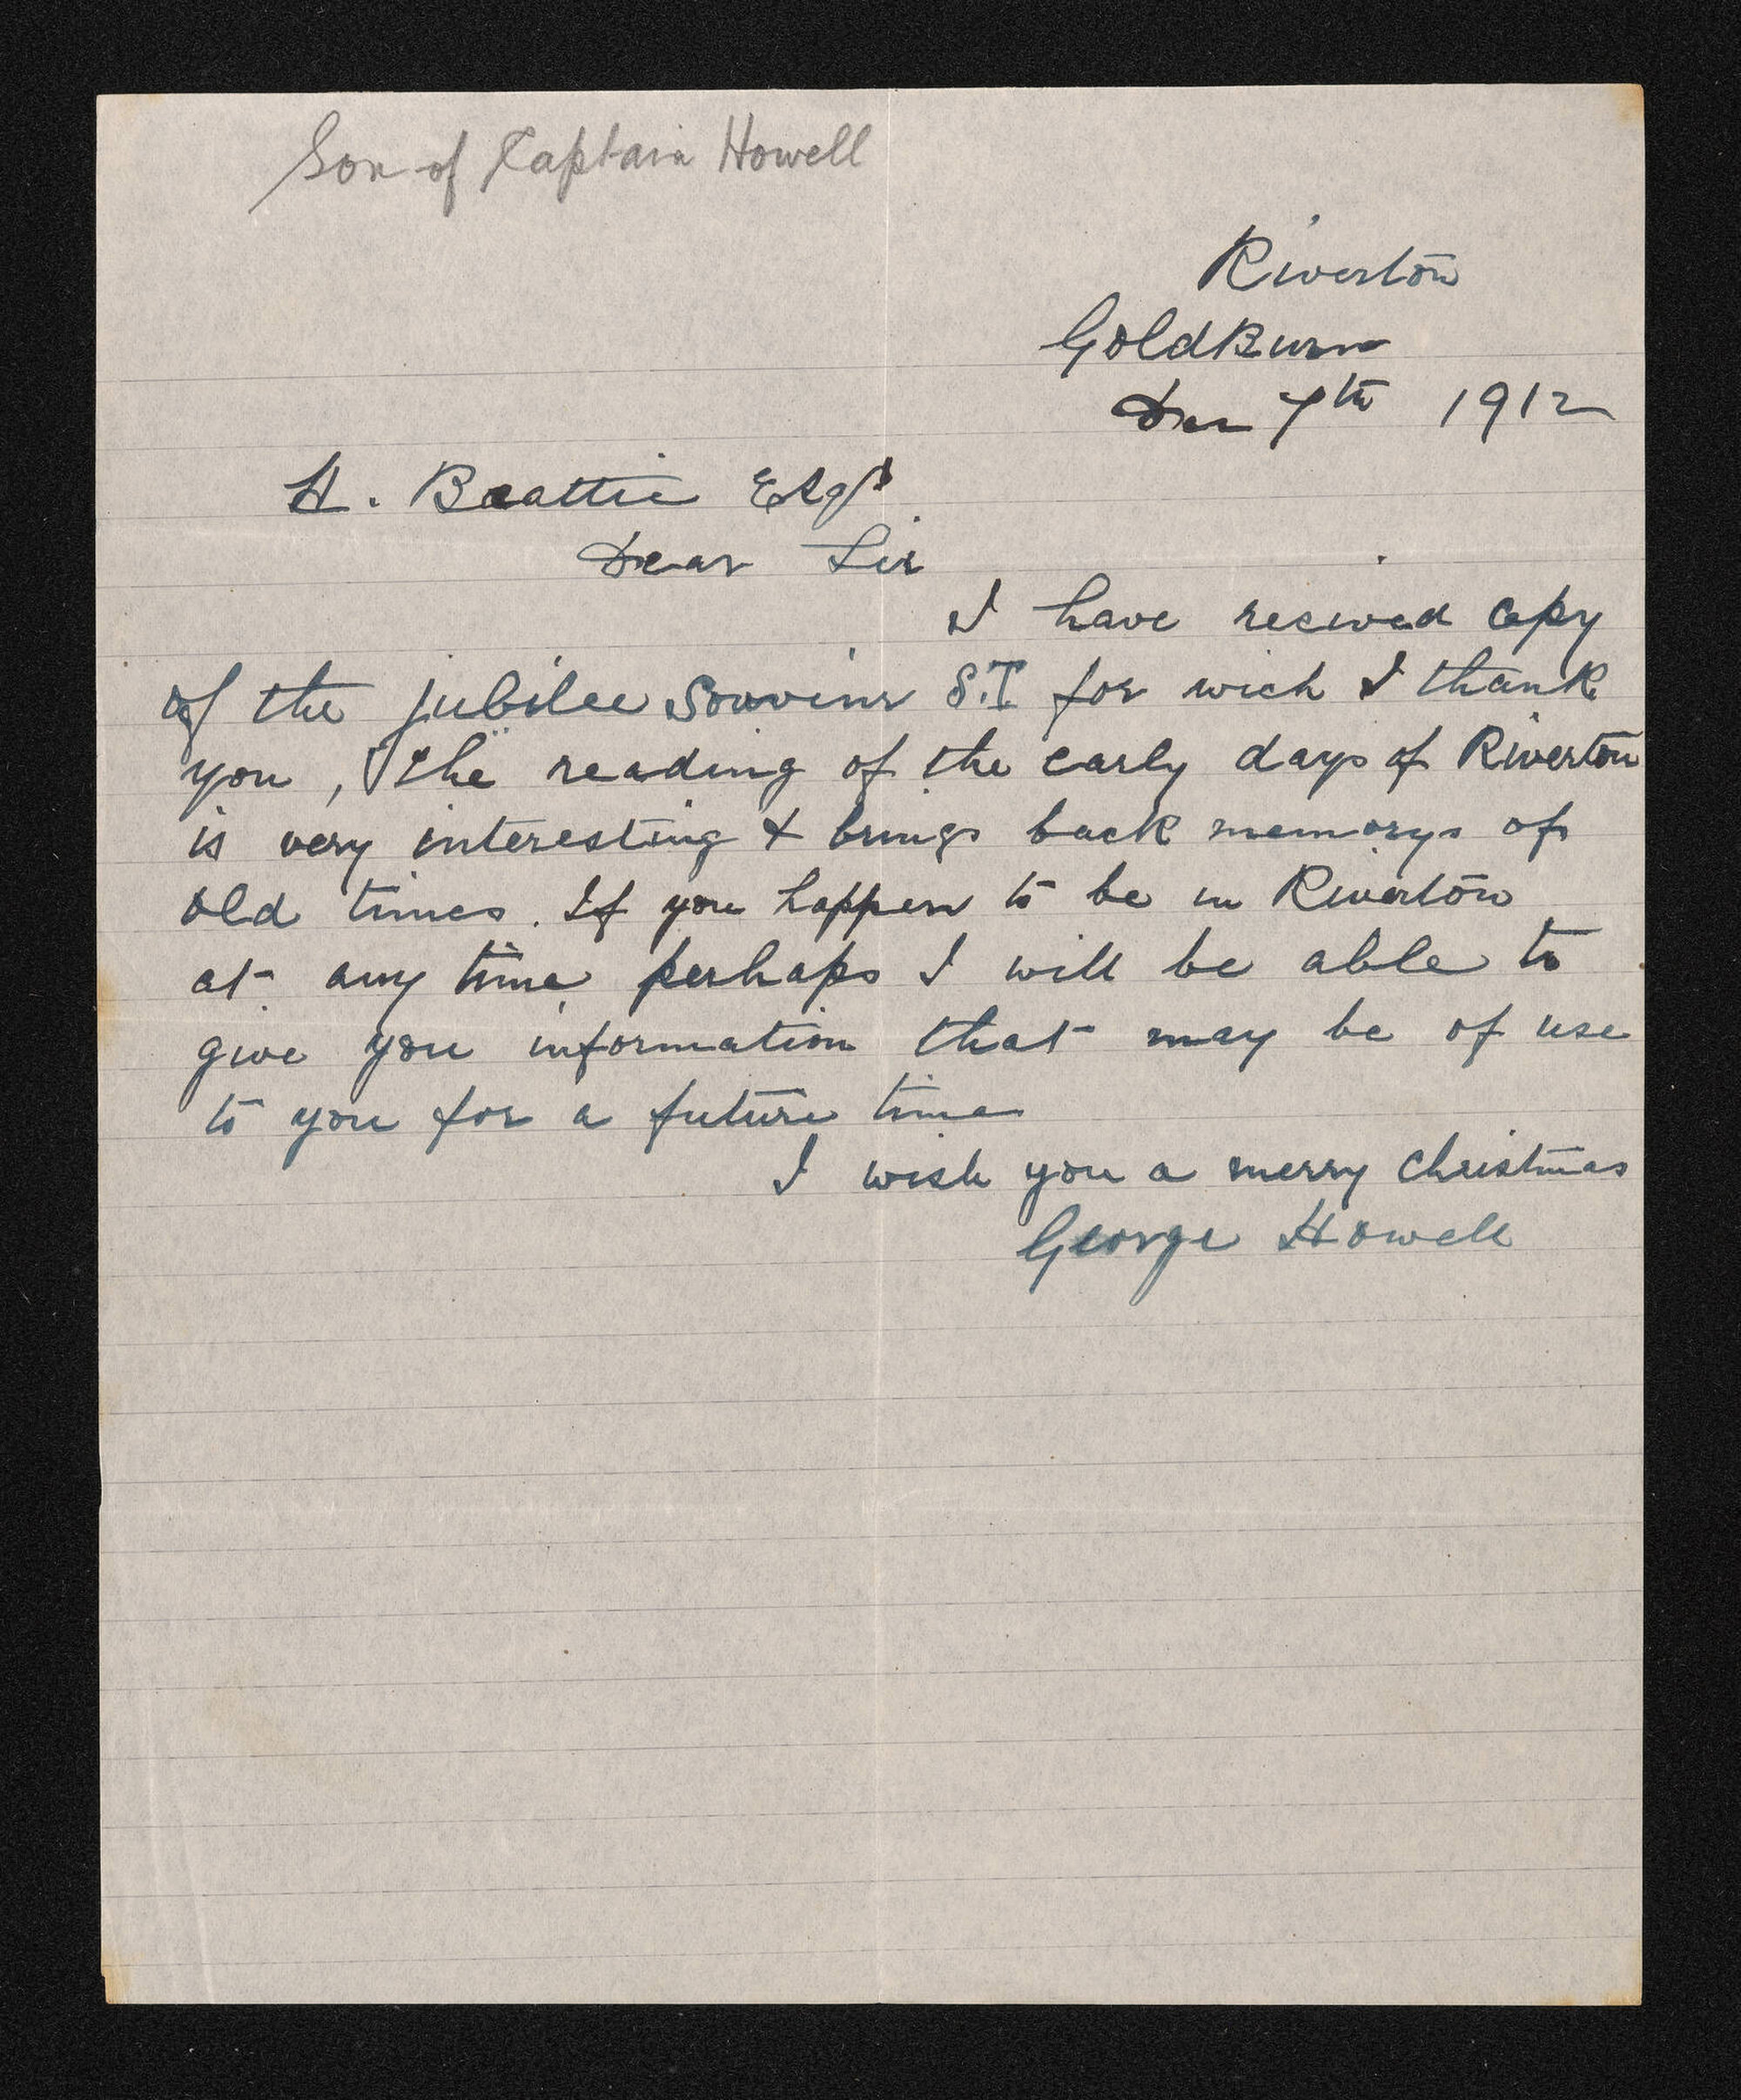 Son of Captain Howell
Riverton
GoldBurn
Dec 7th 1912
H. Beattie Esqr
Dear Sir
I have recived copy
of the jubilee Souvinr S.T for wich I thank
you, The reading of the early days of Riverton
is very interesting & brings back memorys of
old times. If you happen to be in Riverton
at any time perhaps I will be able to
give you information that may be of use
to you for a future time
I wish you a merry Christmas
George Howell